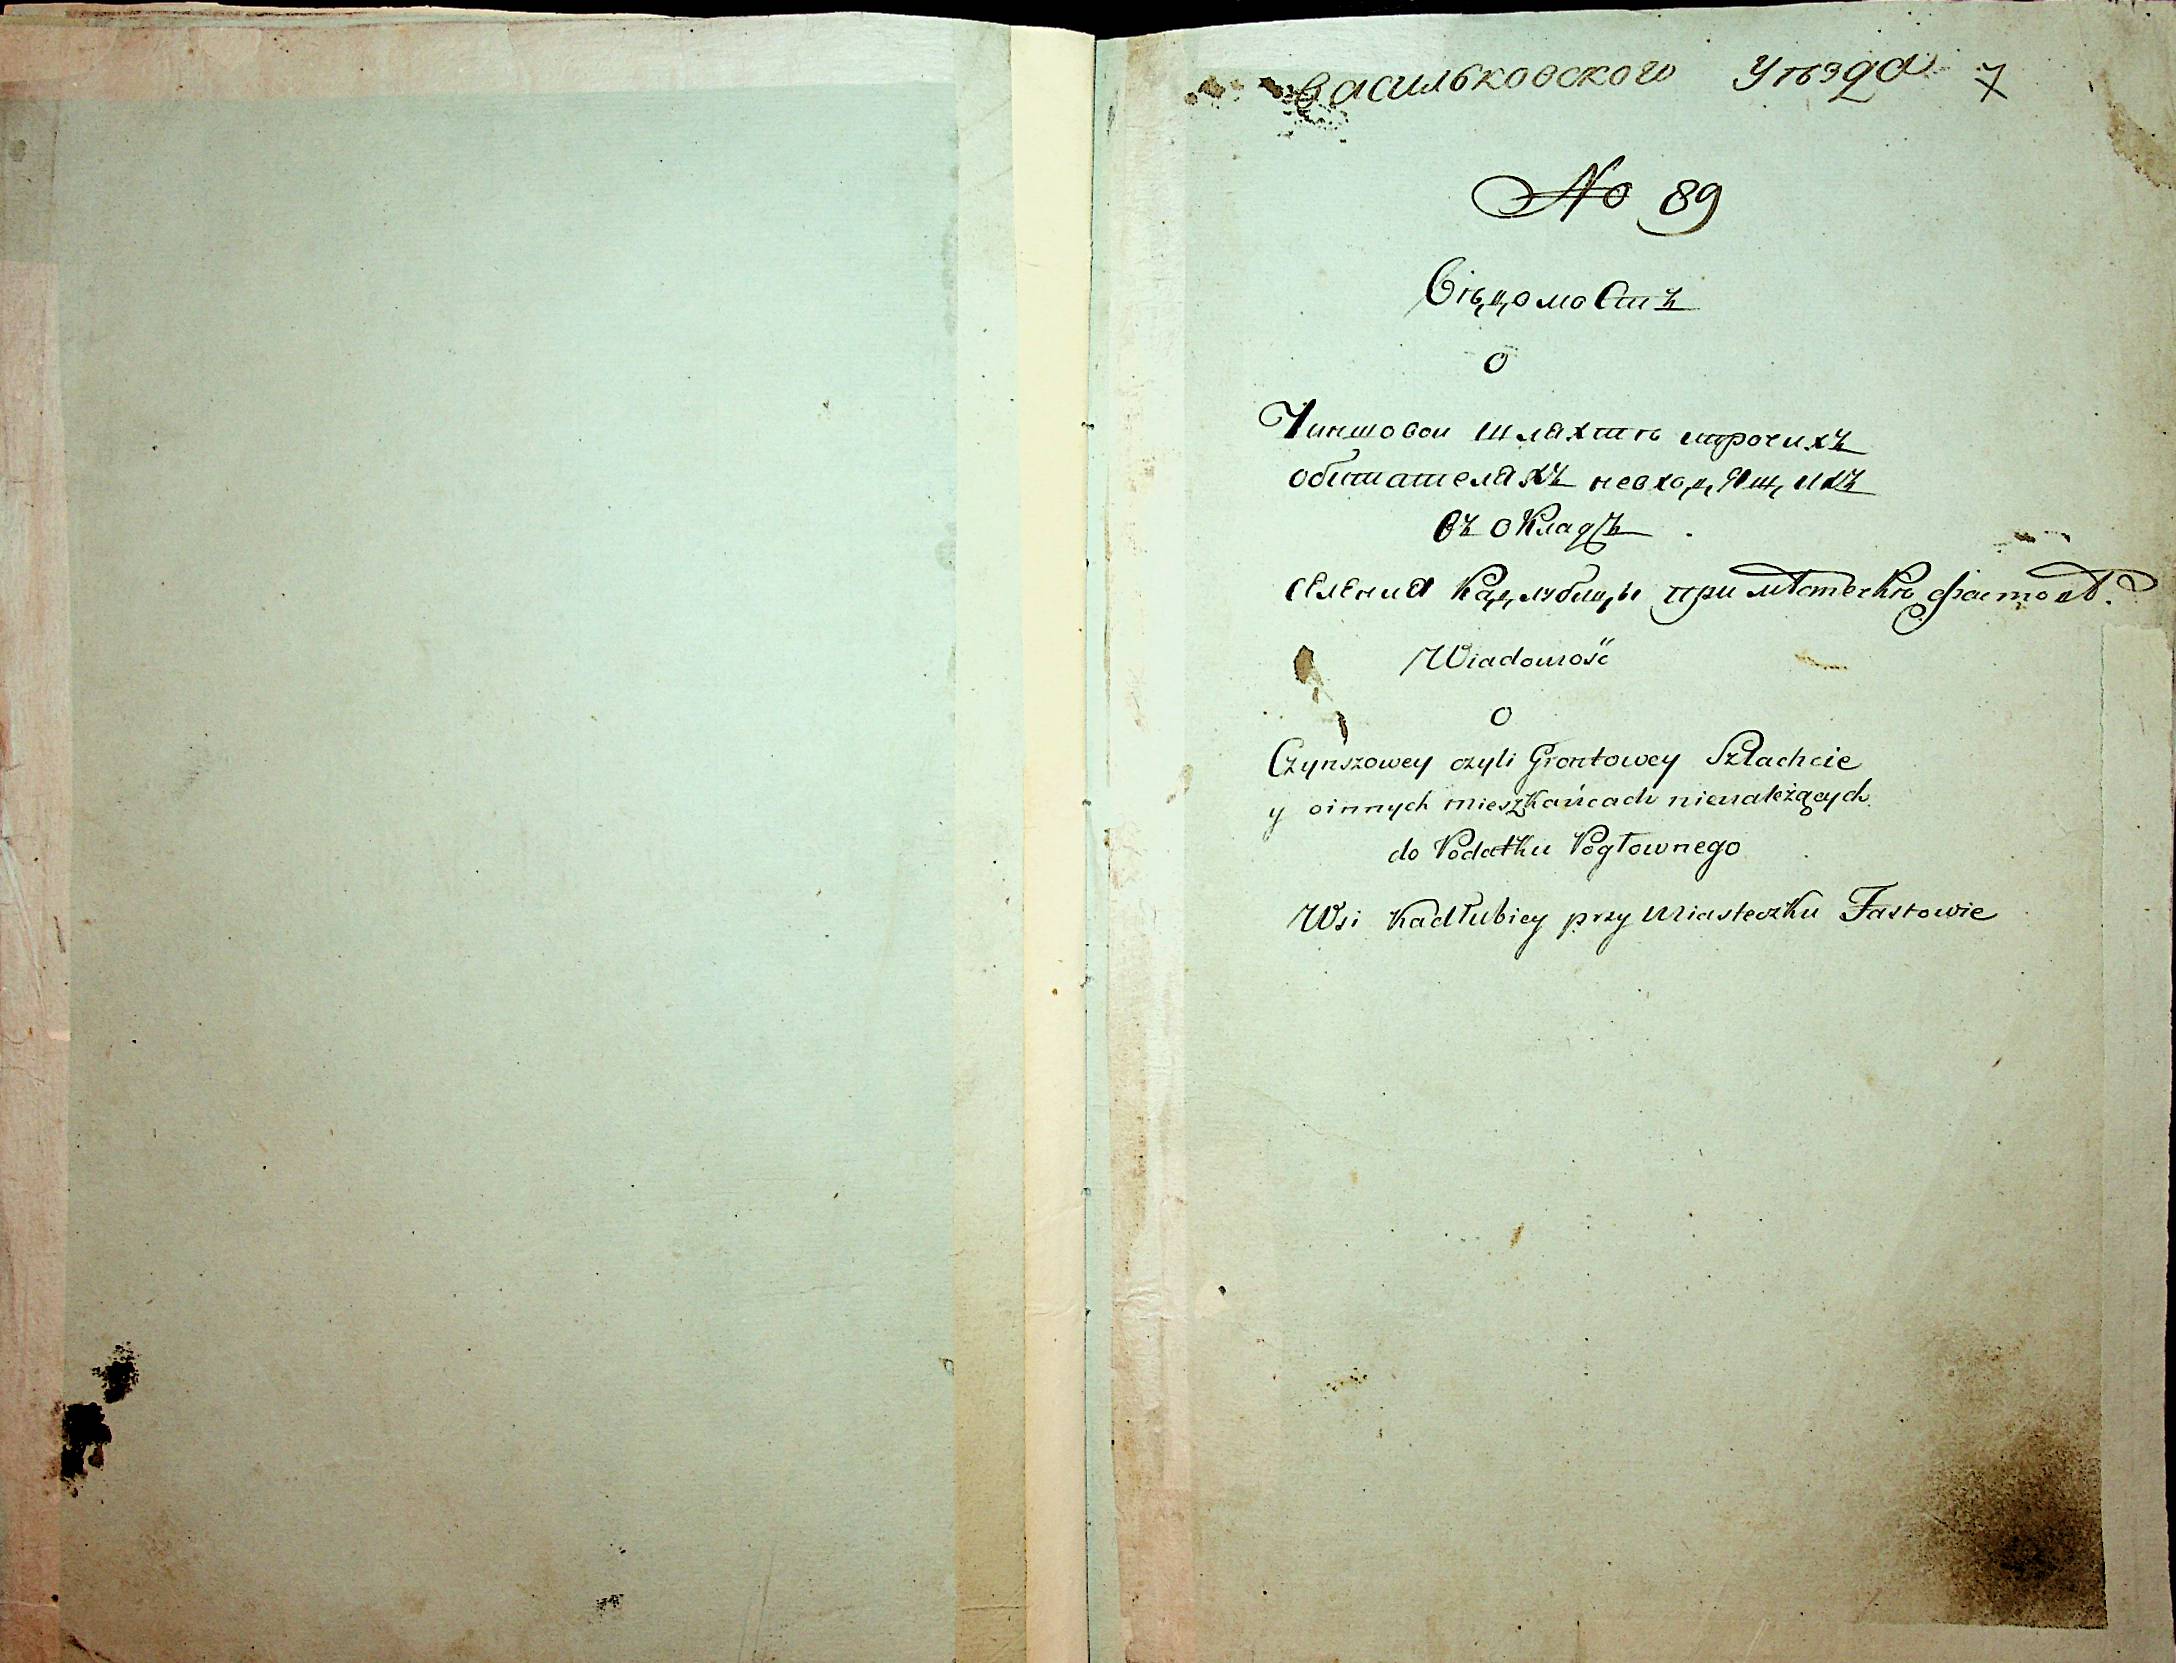 васильковского Уѣзда 7
№ 89
Вѣдомость
о
Чиншовои шляхтѣ ипрочихъ
обитателяхъ невходящихъ
въ окладъ
селения Кадлубицы при мѣстечкѣ фастовѣ.
Wiadomość
o
Czynszowey czyli Grontowey Szlachcie
y oinnych mieszkańcach nienależących
do Podatku Pogłownego
Wsi Kadłubicy przy Miasteczku Fastowie